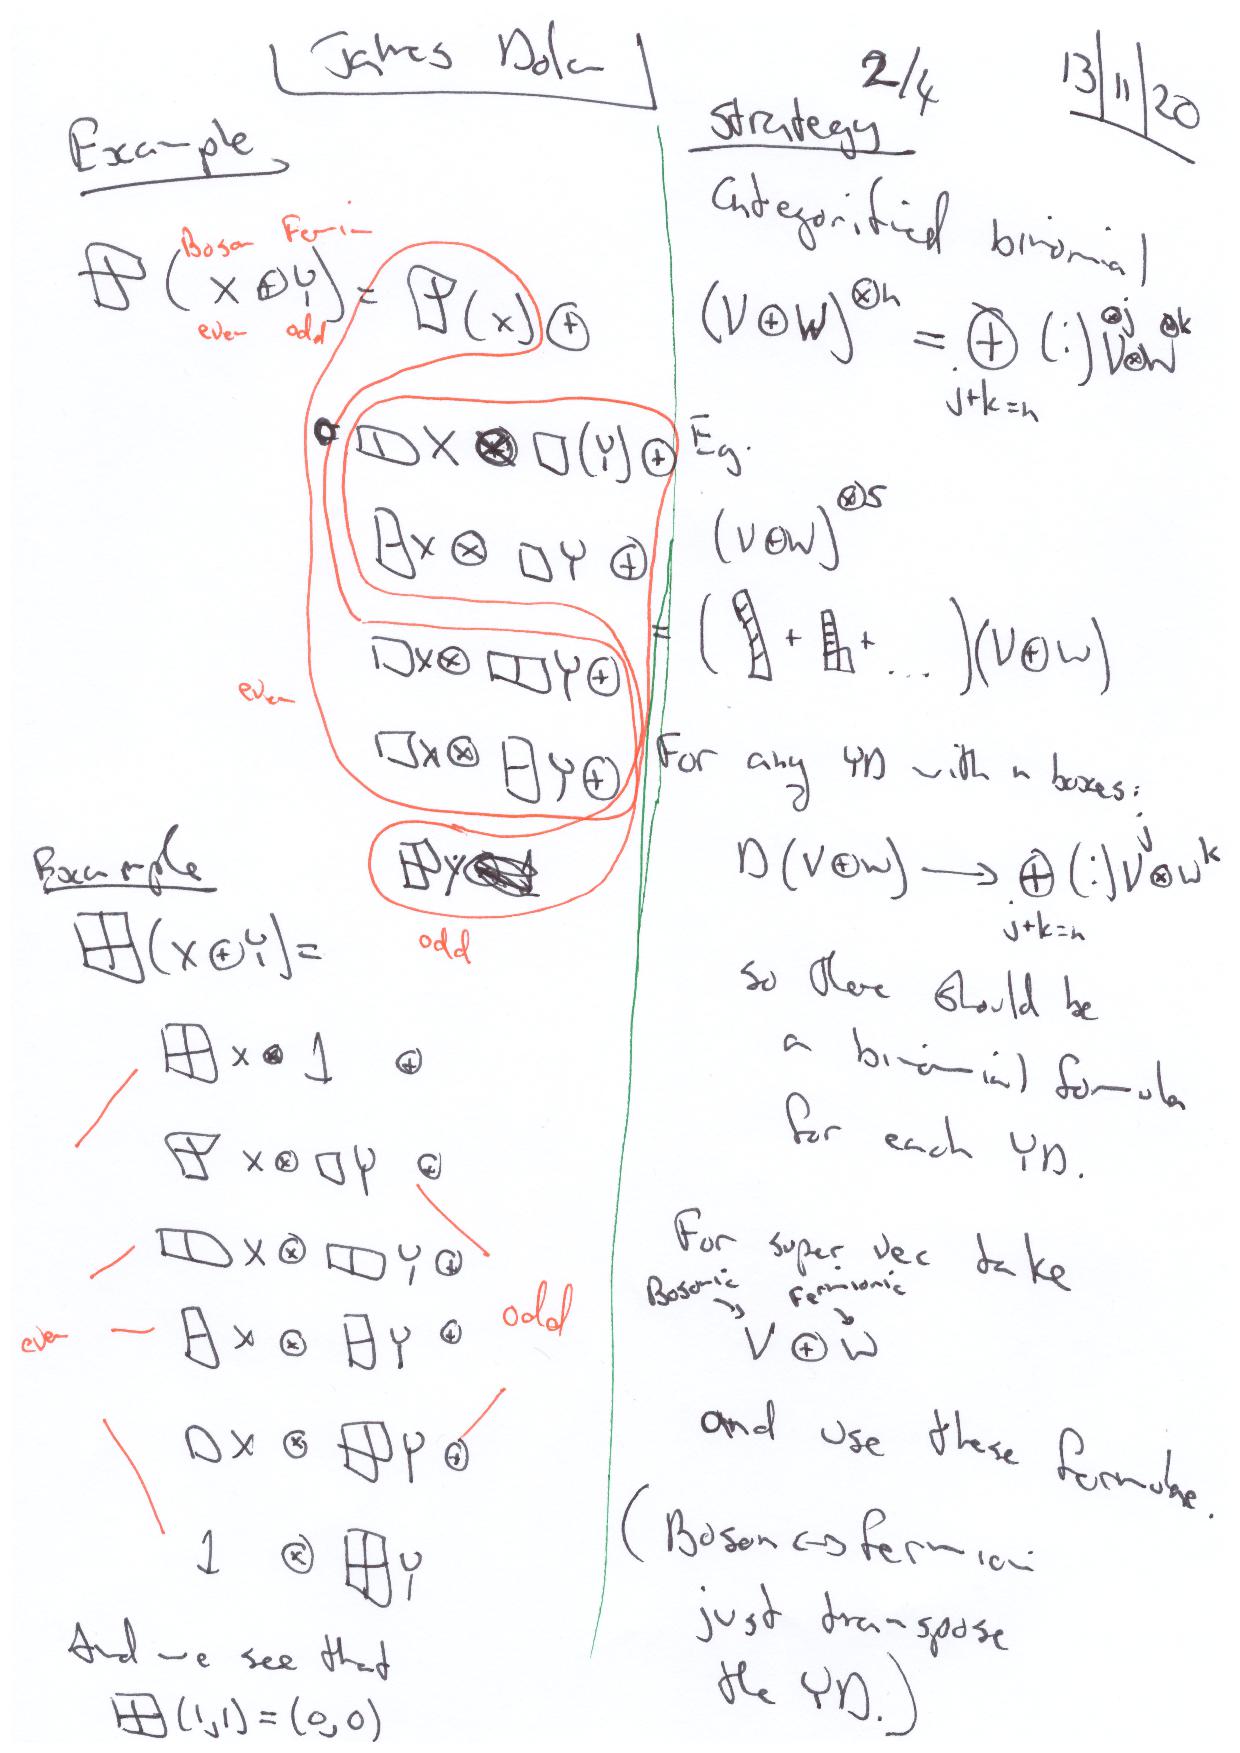 James Dolan
2/4
13/11/20
Example
Boson Fermion
(X ⊕ Y) = (X) ⊕
even odd
X ⊗ (Y) ⊕
X ⊗ Y ⊕
X ⊗ Y ⊕
X ⊗ Y ⊕
even
Y
odd
Example
(X ⊕ Y) =
X ⊗ 1 ⊕
X ⊗ Y ⊕
X ⊗ Y ⊕
X ⊗ Y ⊕
X ⊗ Y ⊕
1 ⊗ Y
even
odd
And we see that
(1,1) = (0,0)
Strategy
Categorified binomial
(V ⊕ W)^⊗n = ⊕ (:) V^⊗j ⊗ W^⊗k
j+k=n
Eg.
(V ⊕ W)^⊗5
= ( + + ... )(V ⊕ W)
For any YD with n boxes:
D(V ⊕ W) → ⊕ (:) V^j ⊗ W^k
j+k=n
so there should be
a binomial formula
for each YD.
For super vec take
Bosonic Fermionic
V ⊕ W
and use these formulae.
(Boson ↔ fermion
just transpose
the YD.)